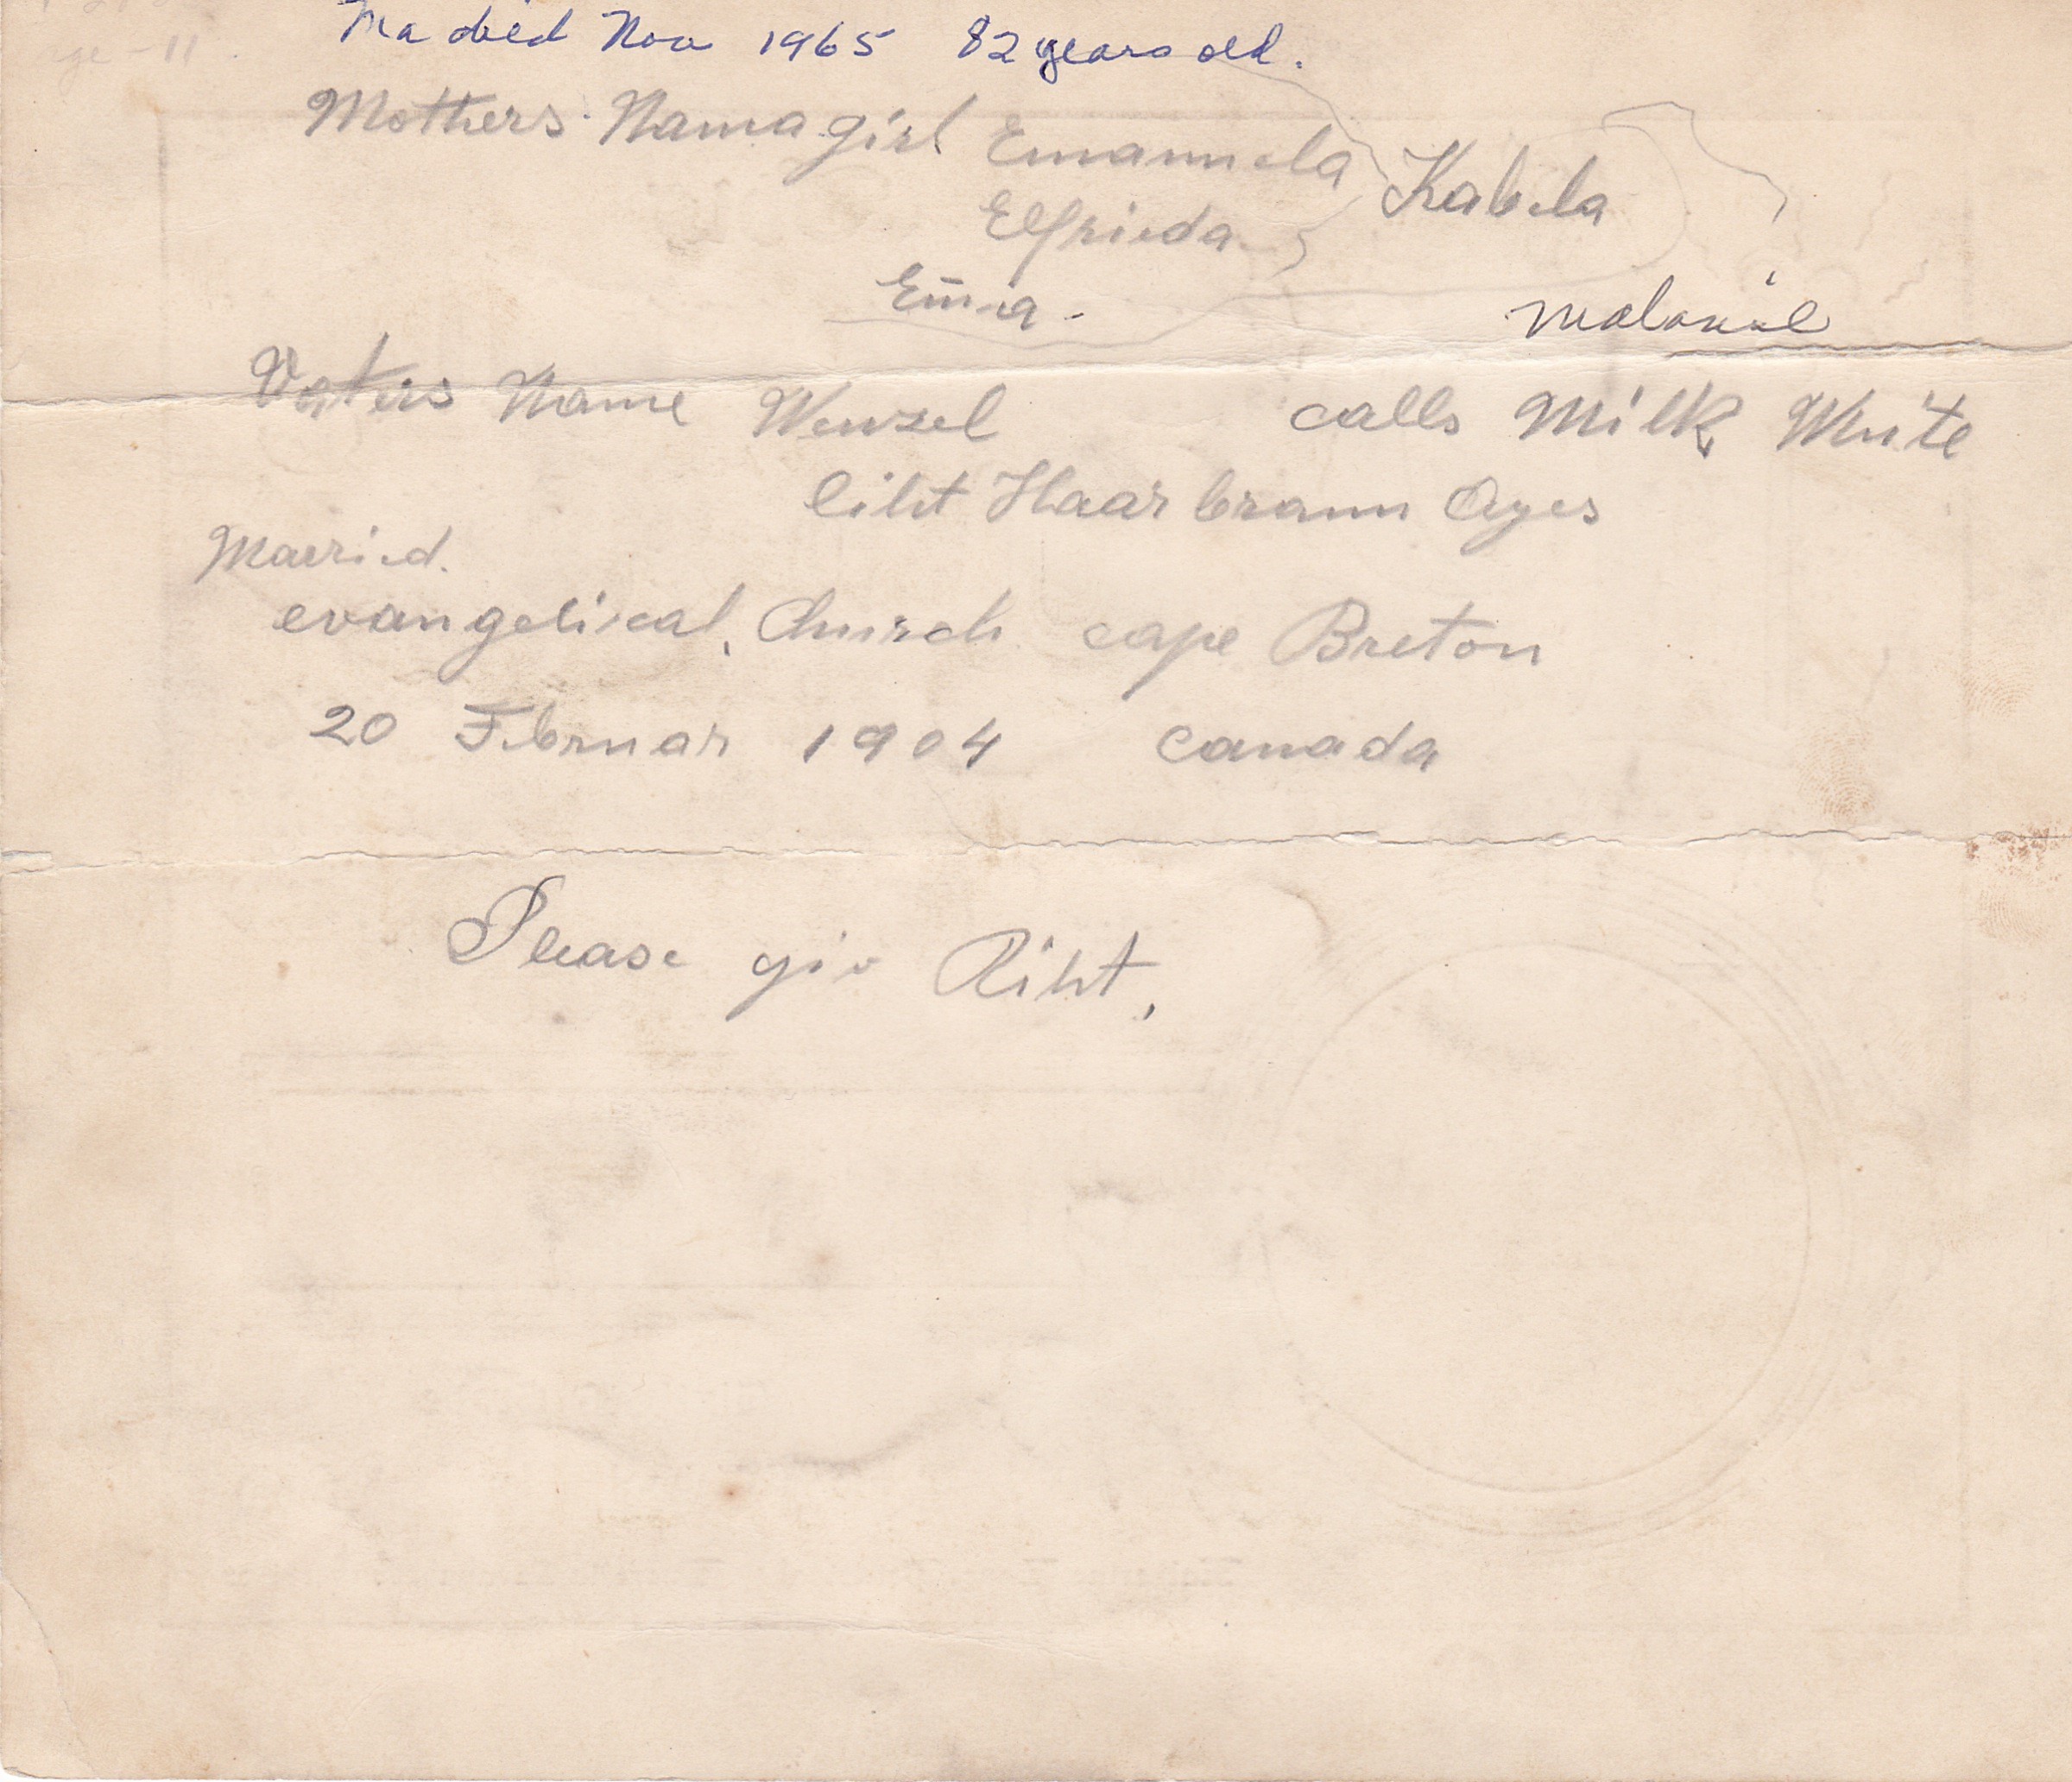 age - 11.
Ma died Nov 1965 82 years old.
Mothers Nama girl Emanuela Kabela
Elfrieda
Em̄a.
Vaters Name Wenzel calls Milk White
liht Haar braun Ayes
Married.
evangelical, Church cape Breton
20 Februar 1904 canada
Please giv Riht,